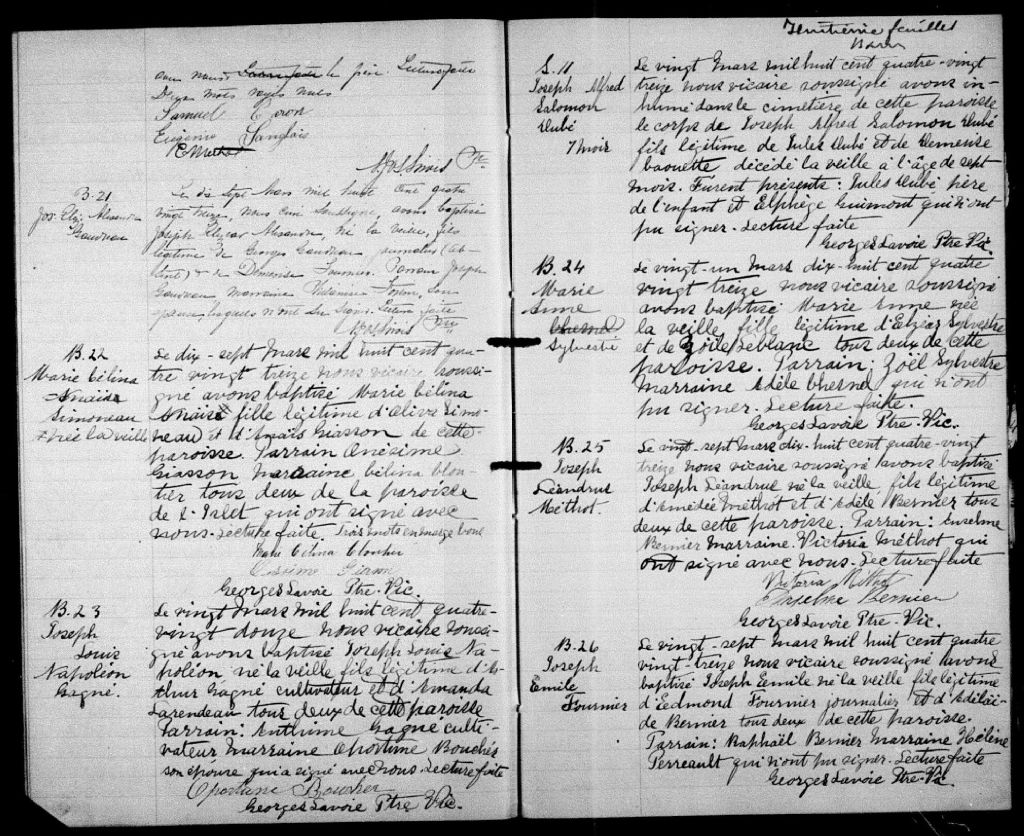 avec nous le père
Deux mots rayés nuls
Samuel Caron
Eugénie Langlais
B. 21
Jos. Elz. Alexandre
Gaudreau
Le dix sept Mars mil huit cent quatre
vingt treize, nous curé soussigné, avons baptisé
Joseph Elzear Alexandre, né la veille, fils
légitime de Georges Gaudreau journalier (ab-
sent) & de Fournier. Parrain Joseph
Gaudreau Marraine son
épouse, lesquels n'ont su signer. Lecture faite
B. 22
Marie Célina
Anaïse
Simoneau
née la veille
Le dix-sept Mars mil huit cent qua-
tre vingt treize nous vicaire soussi-
gné avons baptisé Marie Célina
Anaïse fille légitime d'Olive Simo-
neau et d'Anaïs Giasson de cette
paroisse. Parrain Onésime
Giasson Marraine Célina Clou-
tier tous deux de la paroisse
de l'Islet qui ont signé avec
nous. Lecture faite. Trois mots en marge bons
Marie Célina Cloutier
Georges Lavoie Ptre. Vic.
B. 23
Joseph
Louis
Napoléon
Gagné.
Le vingt Mars mil huit cent quatre-
vingt douze nous vicaire soussi-
gné avons baptisé Joseph Louis Na-
poléon né la veille fils légitime d'Ar-
thur Gagné cultivateur et d'Amanda
Lazendeau tous deux de cette paroisse
Parrain: Anthime Gagné culti-
vateur Marraine Oportune Bouchés
son épouse qui a signé avec nous. Lecture faite
Oportune Boucher
Georges Lavoie Ptre Vic.
Huitième feuillet
S. 11
Joseph Alfred
Salomon
Dubé
7 mois
Le vingt Mars mil huit cent quatre-vingt
treize nous vicaire soussigné avons in-
humé dans le cimetière de cette paroisse
le corps de Joseph Alfred Salomon Dubé
fils légitime de Jules Dubé et de Demerise
Caouette décédé la veille à l'âge de sept
mois. Furent présents: Jules Dubé père
de l'enfant et Elphège Guimont qui n'ont
pu signer. Lecture faite
Georges Lavoie Ptre Vic.
B. 24
Marie
Anne
Chesnel
Sylvestre
Le vingt-un Mars dix-huit cent quatre
vingt treize nous vicaire soussigné
avons baptisé Marie Anne née
la veille, fille légitime d'Elzéar Sylvestre
et de Zoïle Leblanc tous deux de cette
paroisse. Parrain: Zoël Sylvestre
Marraine Adèle Chesnel qui n'ont
pu signer. Lecture faite.
Georges Lavoie Ptre. Vic.
B. 25
Joseph
Léandrul
Méthot.
Le vingt-sept Mars dix-huit cent quatre-vingt
treize nous vicaire soussigné avons baptisé
Joseph Léandrul né la veille, fils légitime
d'Amédée Méthot et d'Adèle Bernier tous
deux de cette paroisse. Parrain: Anselme
Bernier Marraine. Victoria Méthot qui
ont signé avec nous. Lecture faite
Victoria Méthot
Anselme Bernier
Georges Lavoie Ptre. Vic.
B. 26
Joseph
Eemile
Fournier
Le vingt-sept Mars mil huit cent quatre
vingt-treize nous vicaire soussigné avons
baptisé Joseph Eemile né la veille fils légitime
d'Edmond Fournier journalier et d'Adélaï-
de Bernier tous deux de cette paroisse.
Parrain: Raphaël Bernier Marraine Hélène
Perreault qui n'ont pu signer. Lecture faite
Georges Lavoie Ptre-Vic.